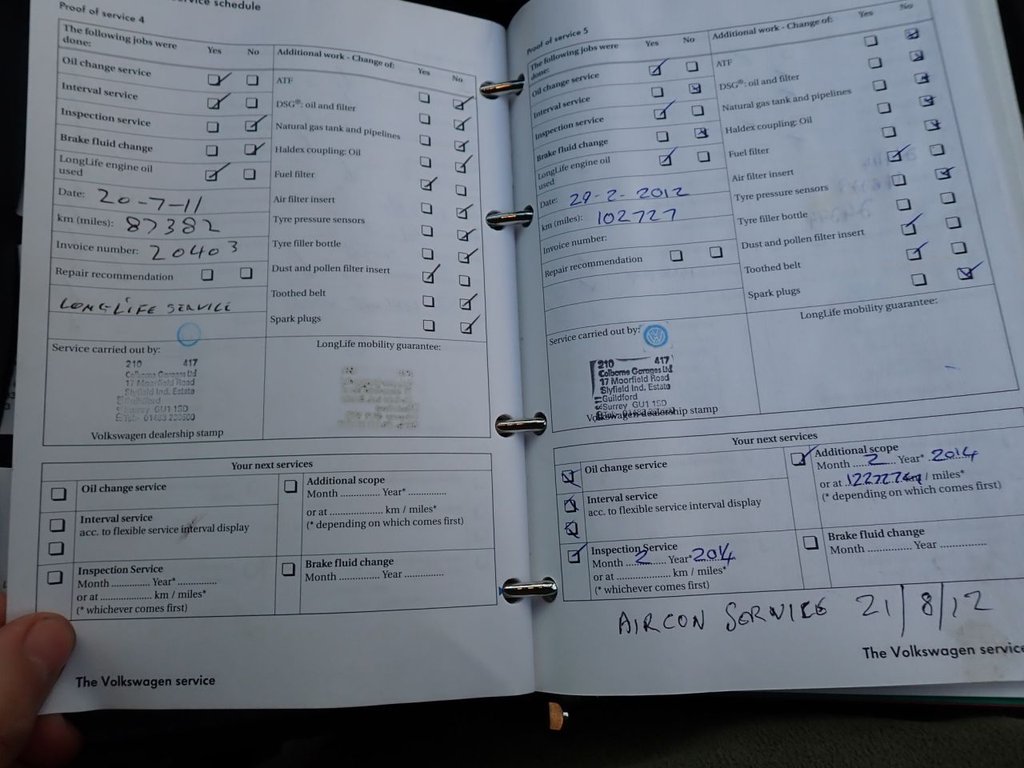 service schedule
Proof of service 4
The following jobs were done: Yes No
Oil change service
Interval service
Inspection service
Brake fluid change
LongLife engine oil used
Date: 20-7-11
km (miles): 87382
Invoice number: 20403
Repair recommendation
LONGLIFE SERVICE
Service carried out by:
210 417
Colborne Garages Ltd
17 Moorfield Road
Slyfield Ind. Estate
Guildford
Surrey GU1 1SD
Volkswagen dealership stamp
Additional work - Change of: Yes No
ATF
DSG®: oil and filter
Natural gas tank and pipelines
Haldex coupling: Oil
Fuel filter
Air filter insert
Tyre pressure sensors
Tyre filler bottle
Dust and pollen filter insert
Toothed belt
Spark plugs
LongLife mobility guarantee:
Your next services
Oil change service
Interval service
acc. to flexible service interval display
Inspection Service
Month .............. Year* ..............
or at .................... km / miles*
(* whichever comes first)
Additional scope
Month .............. Year* ..............
or at .................... km / miles*
(* depending on which comes first)
Brake fluid change
Month .............. Year ..............
The Volkswagen service
Proof of service 5
The following jobs were done: Yes No
Oil change service
Interval service
Inspection service
Brake fluid change
LongLife engine oil used
Date: 29-2-2012
km (miles): 102727
Invoice number:
Repair recommendation
Service carried out by:
210 417
Colborne Garages Ltd
17 Moorfield Road
Slyfield Ind. Estate
Guildford
Surrey GU1 1SD
Volkswagen dealership stamp
Additional work - Change of: Yes No
ATF
DSG®: oil and filter
Natural gas tank and pipelines
Haldex coupling: Oil
Fuel filter
Air filter insert
Tyre pressure sensors
Tyre filler bottle
Dust and pollen filter insert
Toothed belt
Spark plugs
LongLife mobility guarantee:
Your next services
Oil change service
Interval service
acc. to flexible service interval display
Inspection Service
Month 2 Year* 2014
or at .................... km / miles*
(* whichever comes first)
Additional scope
Month 2 Year* 2014
or at 122727 km / miles*
(* depending on which comes first)
Brake fluid change
Month .............. Year ..............
AIRCON SERVICE 21/8/12
The Volkswagen service